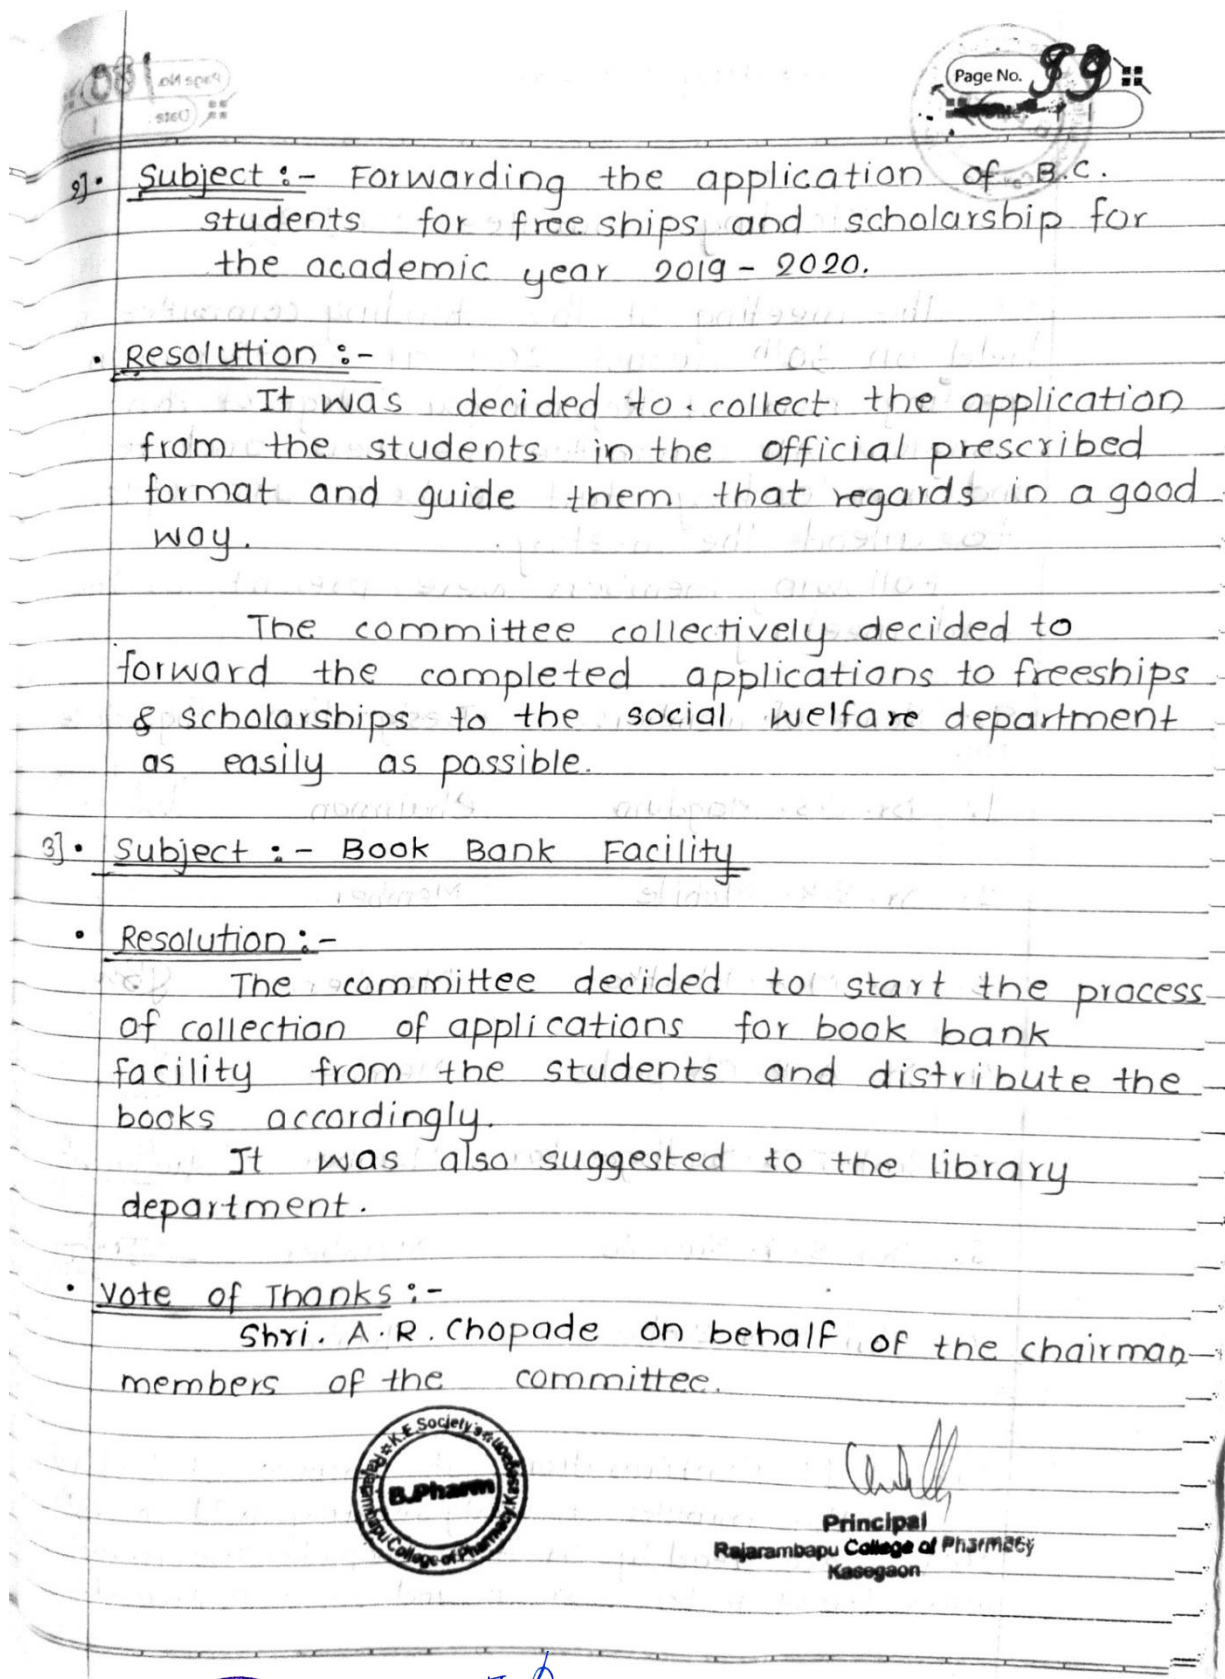 Page No. 99
2]. Subject :- Forwarding the application of B.C.
students for free ships and scholarship for
the academic year 2019 - 2020.
• Resolution :-
It was decided to collect the application
from the students in the official prescribed
format and guide them that regards in a good
way.
The committee collectively decided to
forward the completed applications to freeships
& scholarships to the social welfare department
as easily as possible.
3] • Subject :- Book Bank Facility
• Resolution :-
The committee decided to start the process
of collection of applications for book bank
facility from the students and distribute the
books accordingly.
It was also suggested to the library
department.
• Vote of Thanks :-
Shri. A.R. Chopade on behalf of the chairman
members of the committee.
K.E. Society's
Rajarambapu College of Pharmacy, Kasegaon
B.Pharm
Principal
Rajarambapu College of Pharmacy
Kasegaon